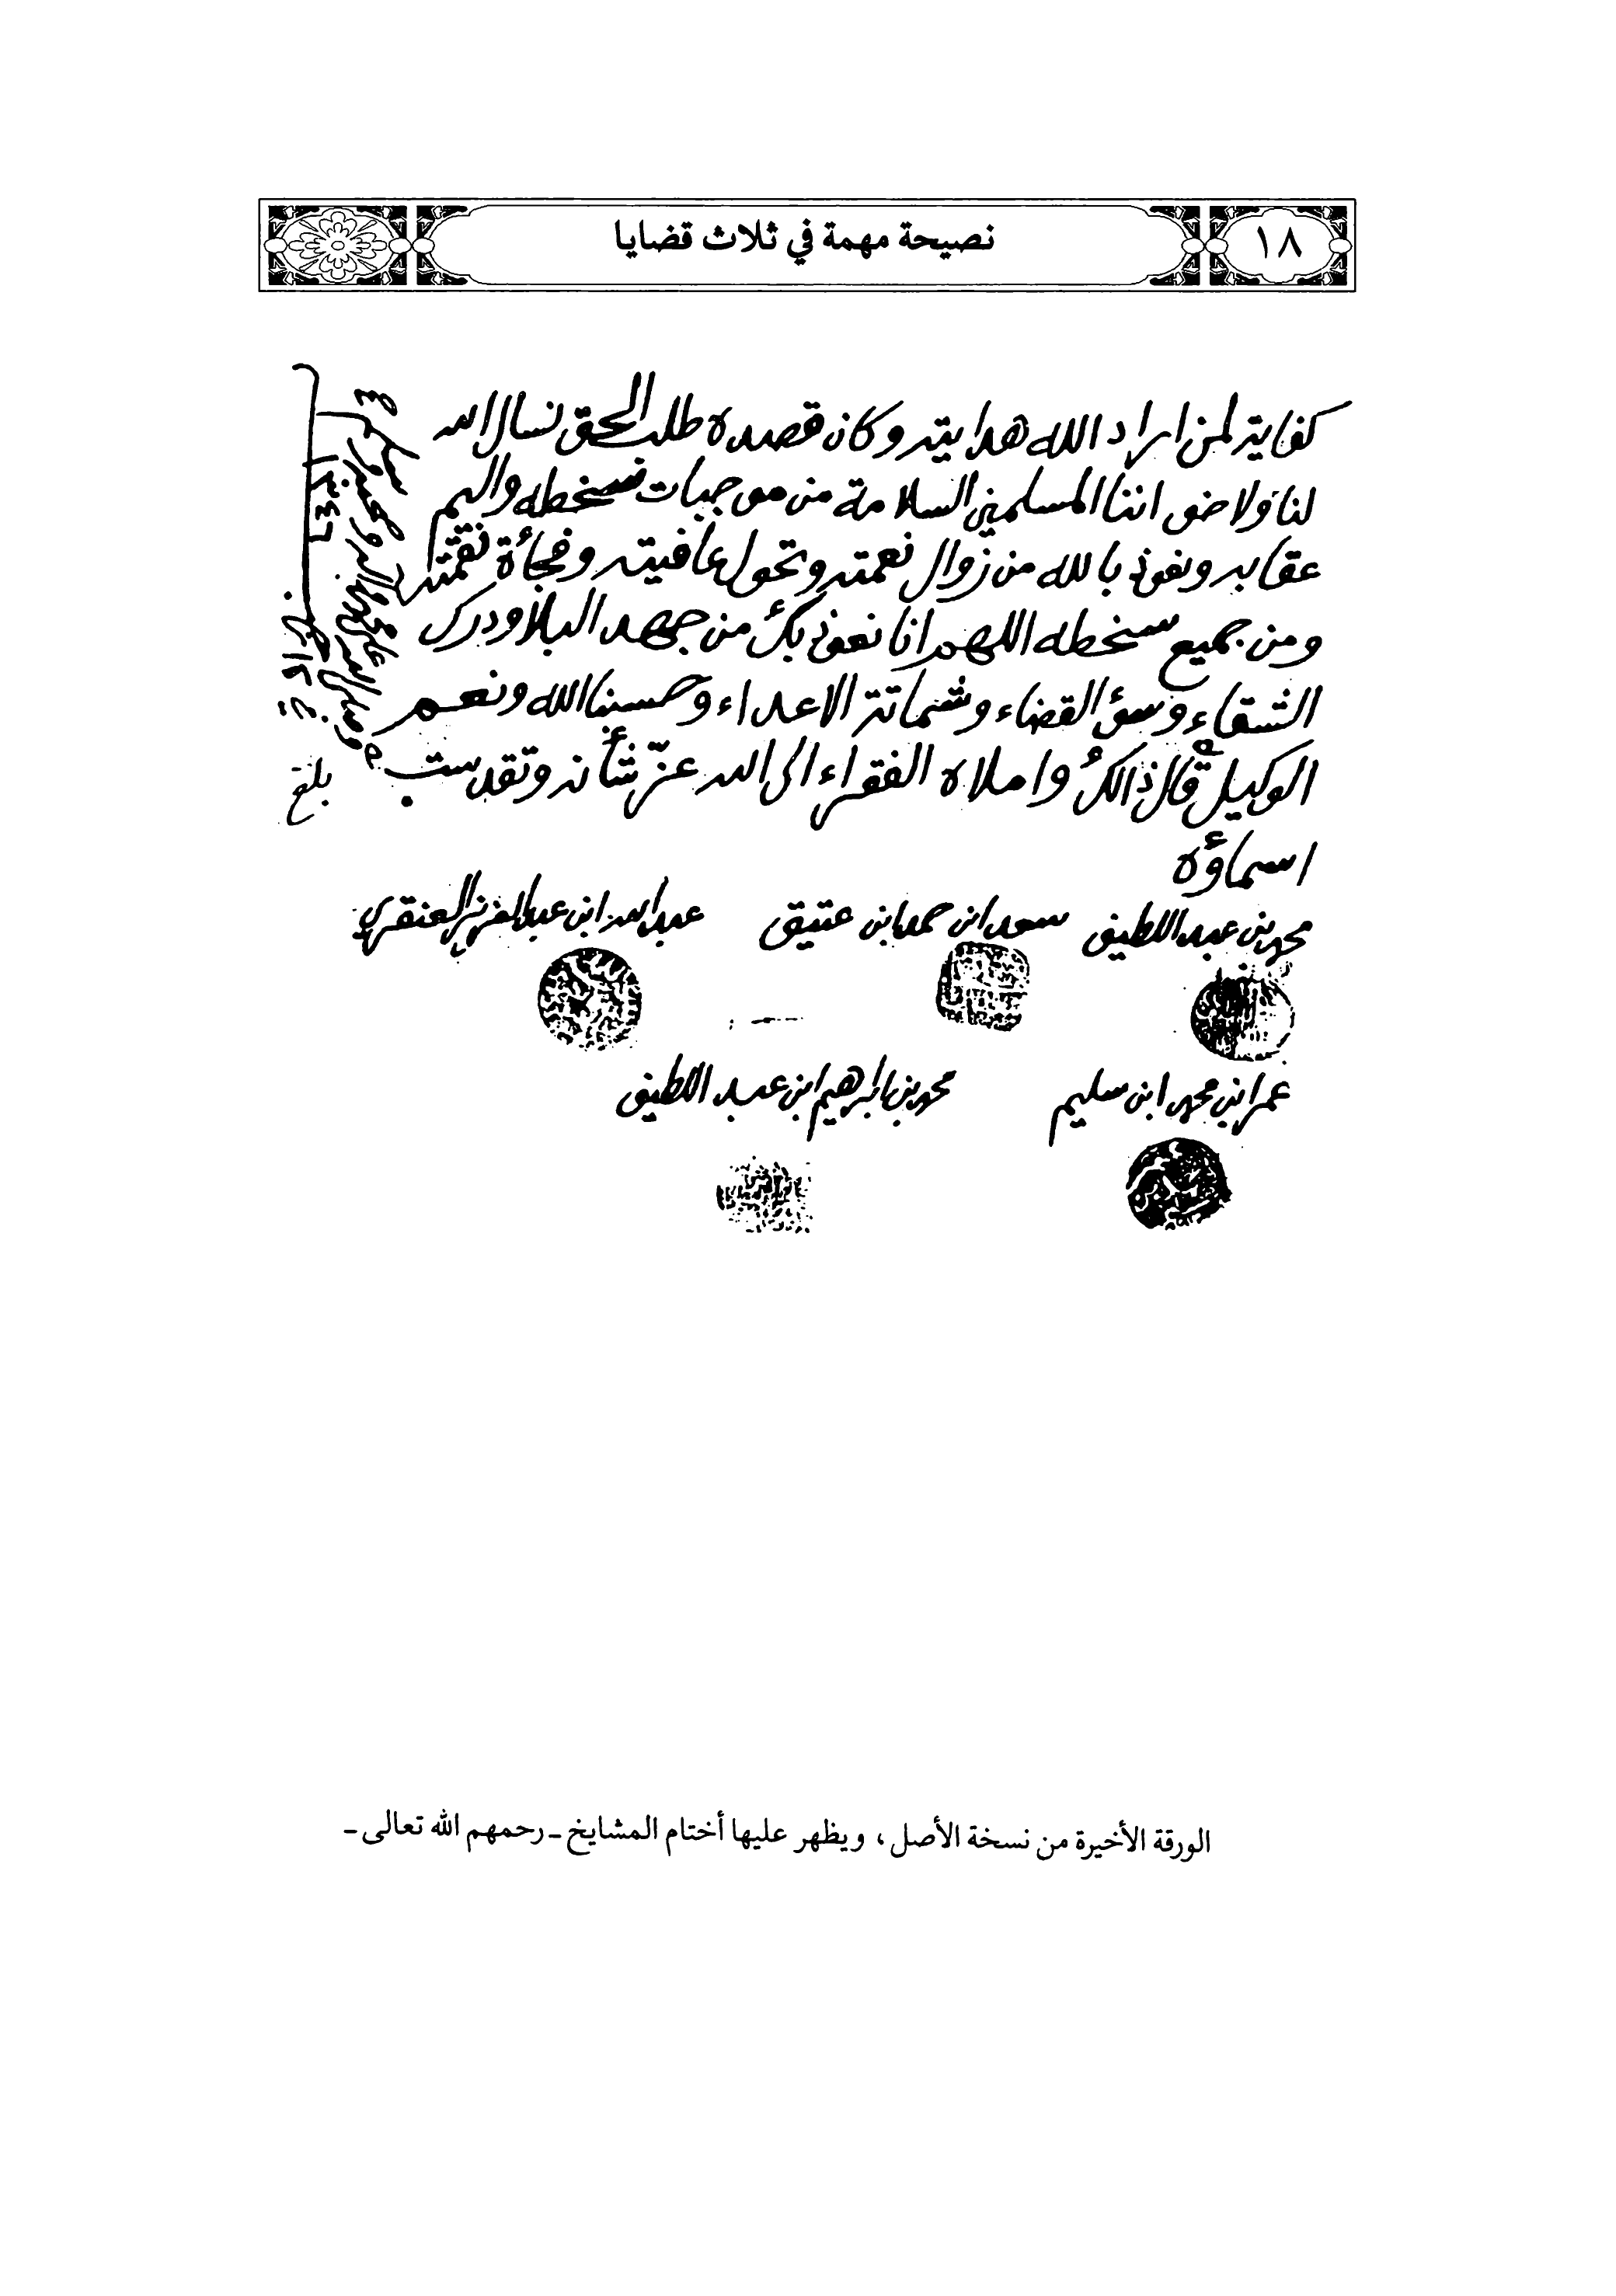 ١٨
نصيحة مهمة في ثلاث قضايا
كفاية لمن اراد الله هدايته وكان قصده طلب الحق نسال الله
لنا ولاخواننا المسلمين السلامة من موجبات سخطه واليم
عقابه ونعوذ بالله من زوال نعمته وتحول عافيته وفجأة نقمته
ومن جميع سخطه اللهم انا نعوذ بك من جهد البلاء ودرك
الشقاء وسؤ القضاء وشماتة الاعداء وحسبنا الله ونعم
الوكيل قال ذالك واملاه الفقراء الى الله عزّ شأنه وتقدست
اسماؤه
محمد بن عبد اللطيف سعد ابن حمد ابن عتيق عبد الله ابن عبد العزيز العنقري
عمر ابن محمد ابن سليم محمد بن ابراهيم ابن عبد اللطيف
وصلى الله على محمد واله وصحبه وسلم
بلغ
الورقة الأخيرة من نسخة الأصل، ويظهر عليها أختام المشايخ ـ رحمهم الله تعالى ـ